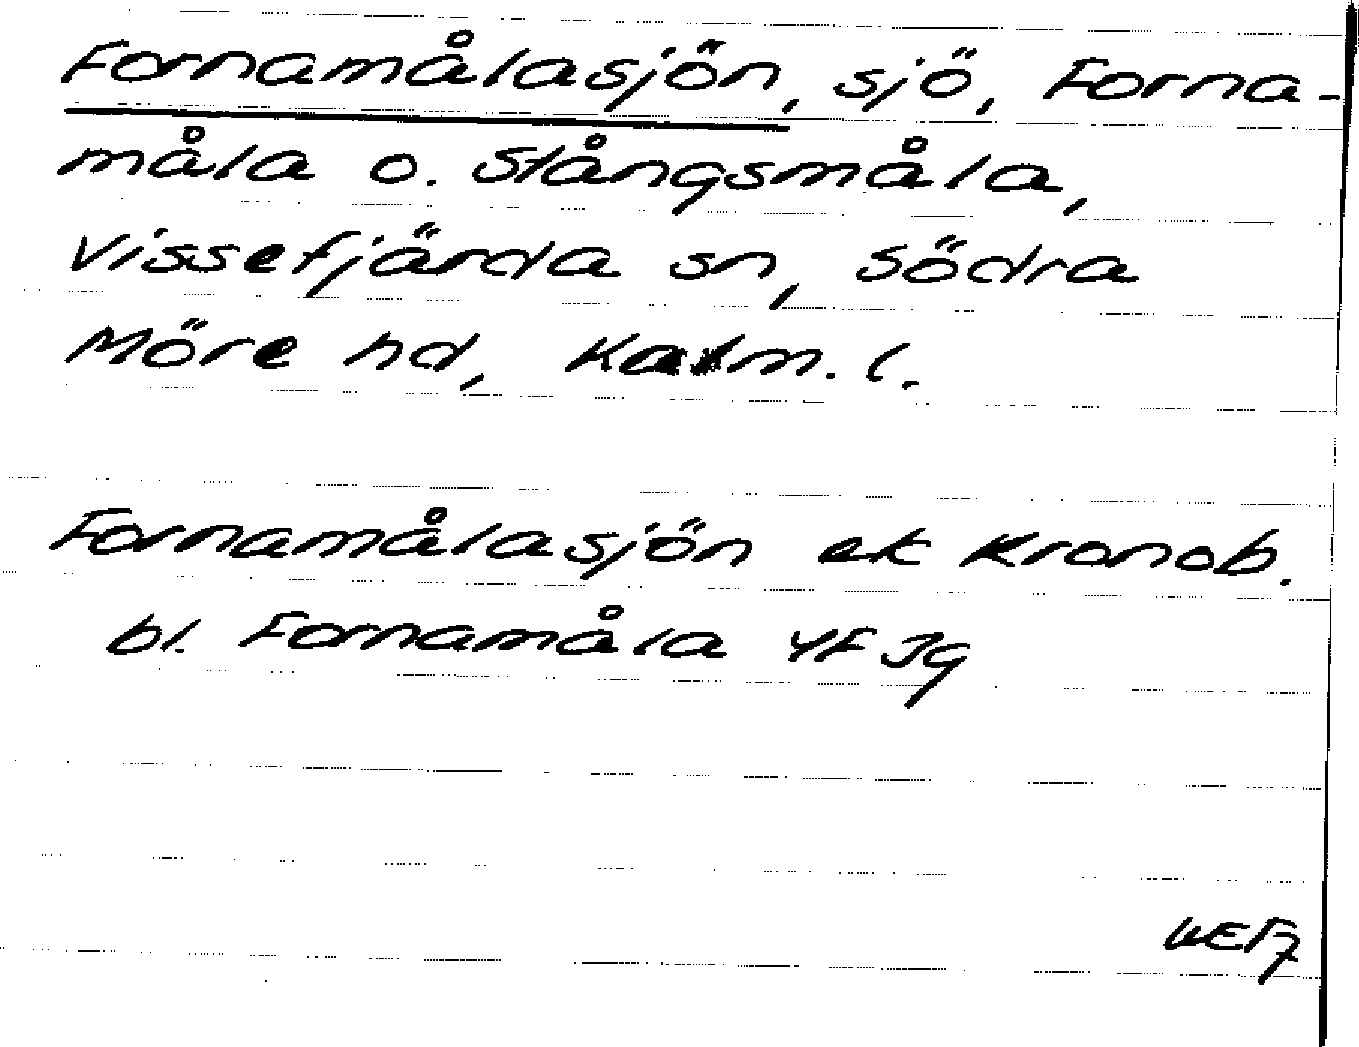 Fornamålasjön, sjö, Forna-
måla o. Stångsmåla,
Vissefjärda sn, Södra
Möre hd, Kalm. l.
Fornamålasjön ek Kronob.
bl. Fornamåla 4F Jg